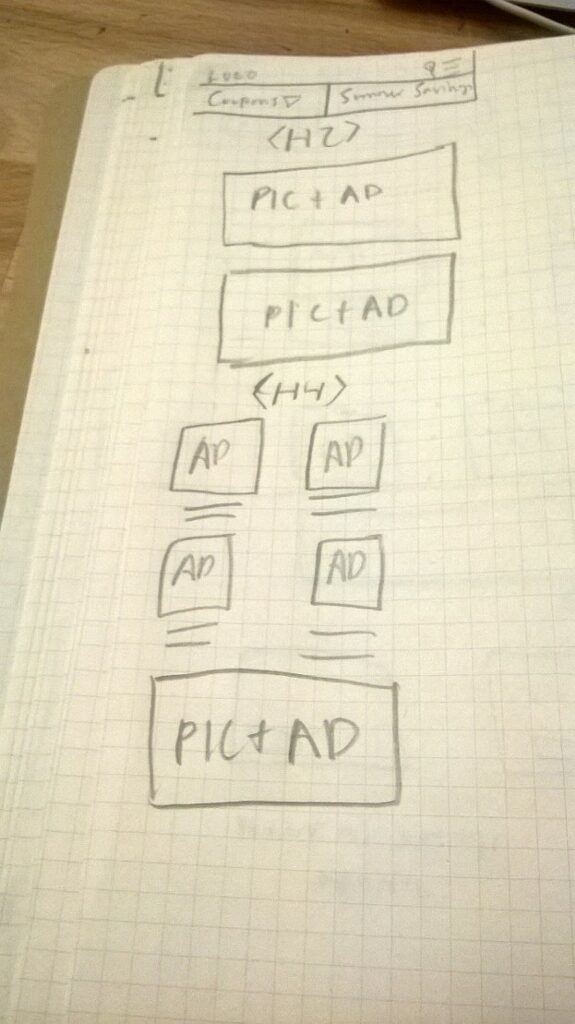 LOGO
Coupons ▽ Summer Savings
<H2>
PIC + AD
PIC + AD
<H4>
AD AD
AD AD
PIC + AD